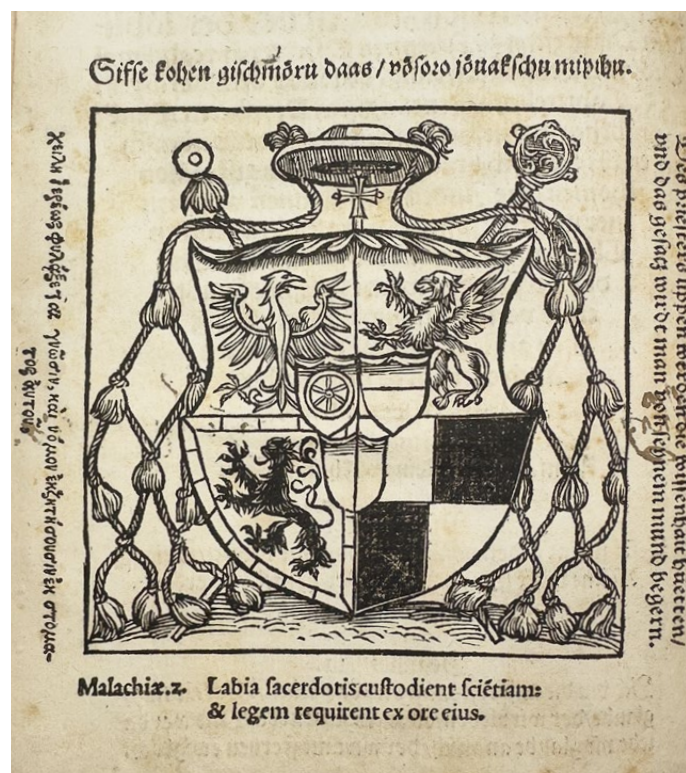 Sifse kohen gischmōru daas / vōsoro jōuakschu mipihu.
χείλη ἱερέως φυλάξεται γνῶσιν, καὶ νόμον ἐκζητήσουσιν ἐκ στόμα-
τος ἀυτοῦ
Des priesters lippen werden die
vnd das gesatz wurdt man von seinem mund begern.
Malachiæ.2. Labia sacerdotis custodient sciētiam:
& legem requirent ex ore eius.